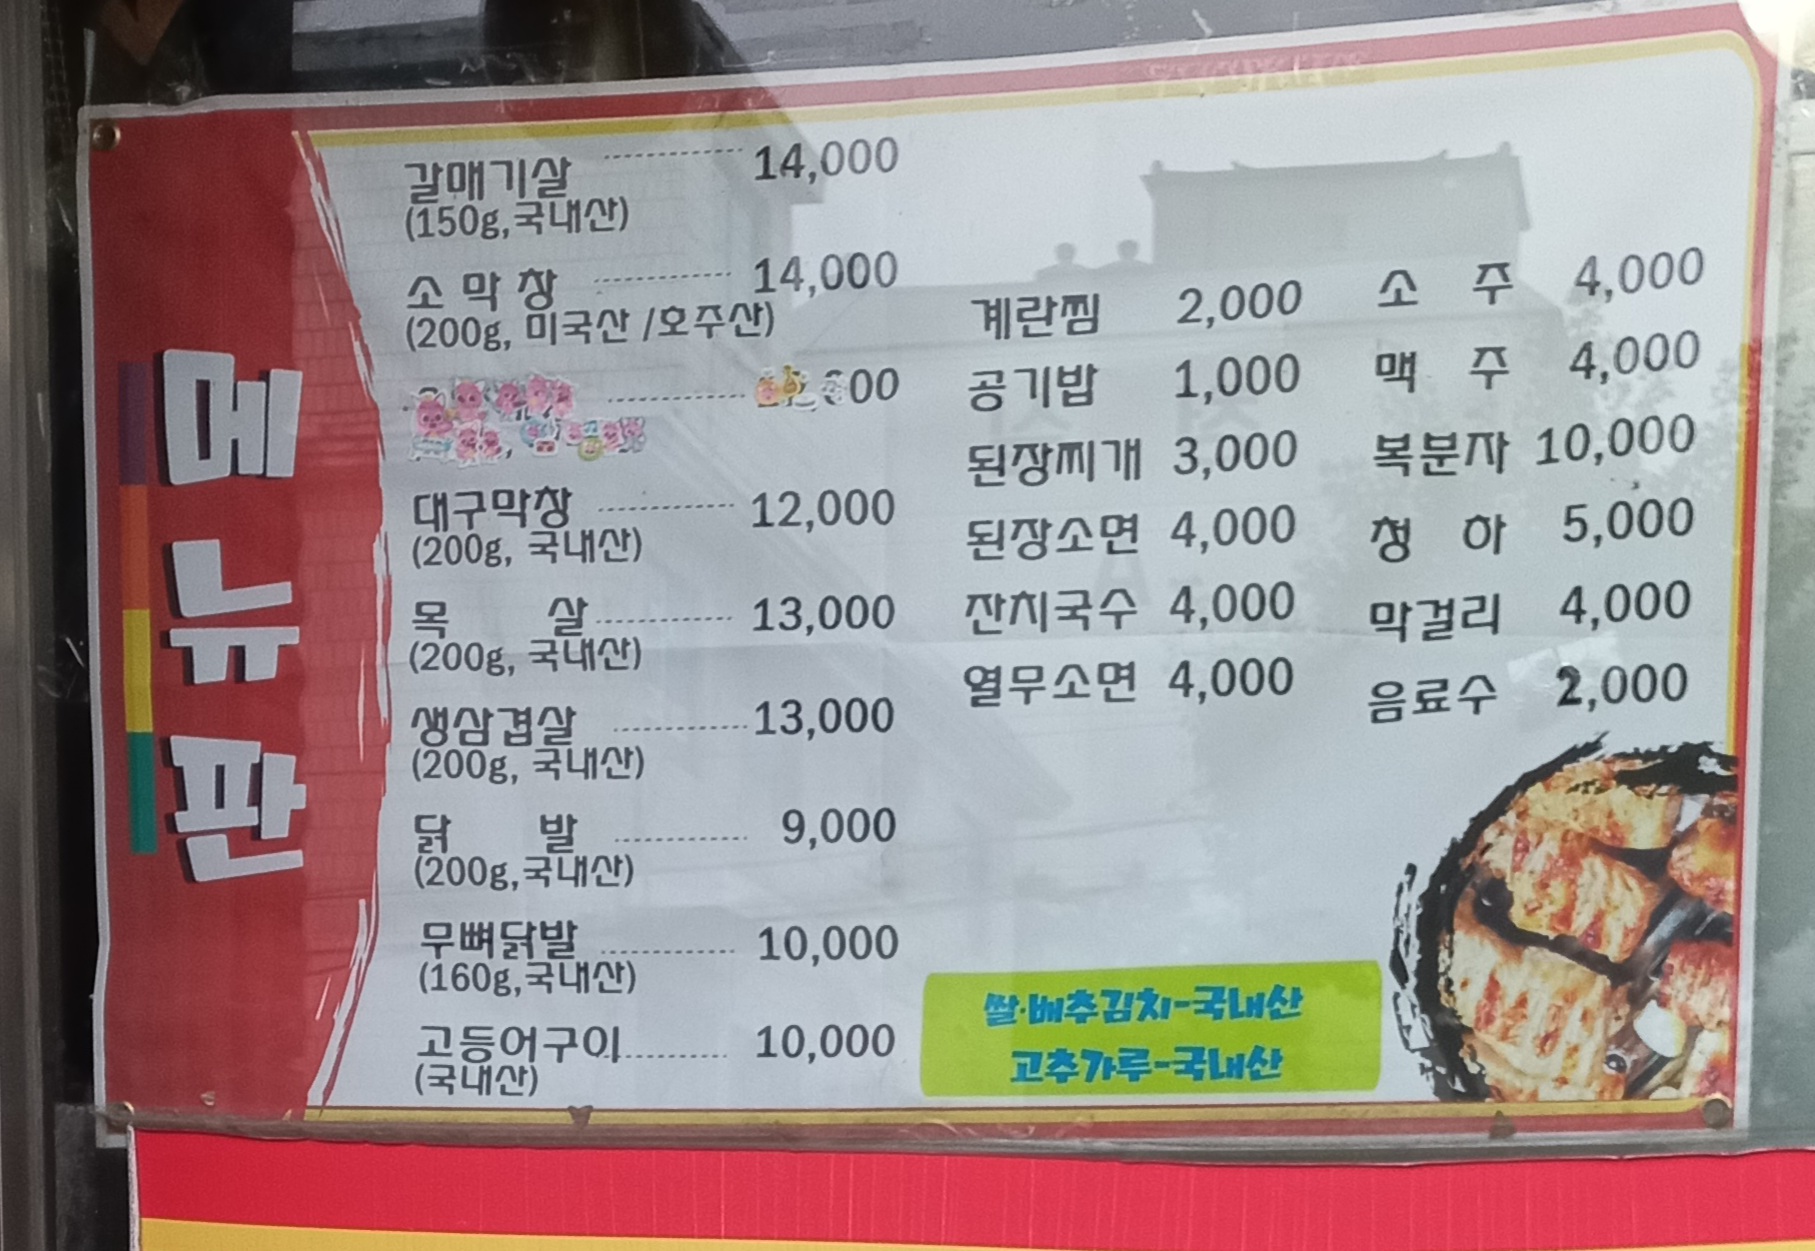 메뉴판
갈매기살 14,000
(150g,국내산)
소막창 14,000
(200g, 미국산/호주산)
대구막창 12,000
(200g, 국내산)
목살 13,000
(200g, 국내산)
생삼겹살 13,000
(200g, 국내산)
닭발 9,000
(200g,국내산)
무뼈닭발 10,000
(160g,국내산)
고등어구이 10,000
(국내산)
계란찜 2,000
공기밥 1,000
된장찌개 3,000
된장소면 4,000
잔치국수 4,000
열무소면 4,000
소주 4,000
맥주 4,000
복분자 10,000
청하 5,000
막걸리 4,000
음료수 2,000
쌀·배추김치-국내산
고추가루-국내산